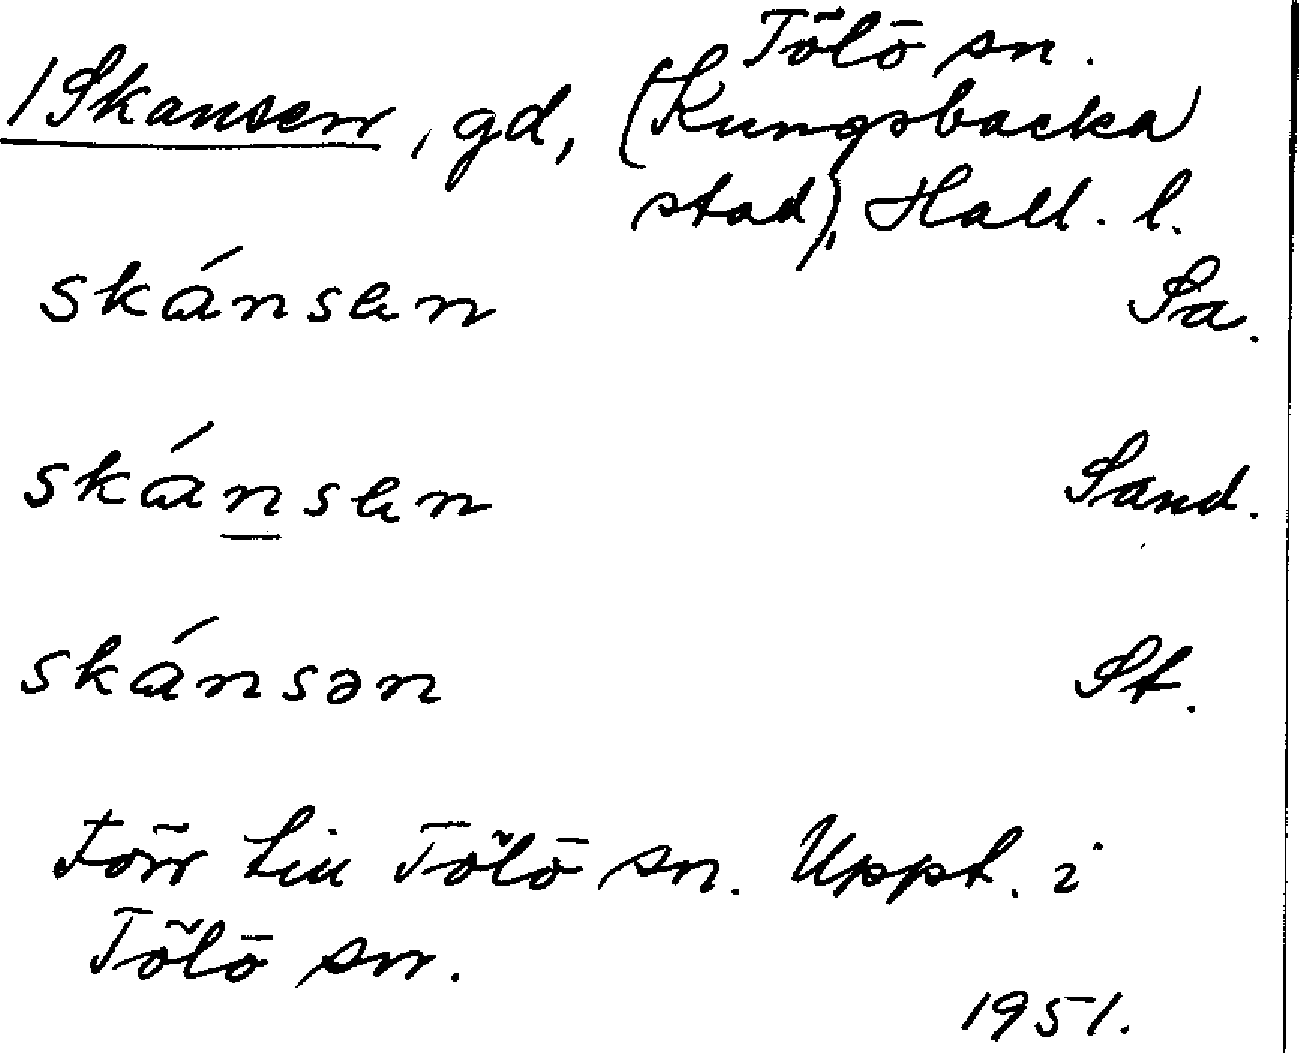 Tölö sn.
/Skansen, gd, (Kungsbacka
stad), Hall. l.
skánsen Sa.
skánsen Sand.
skánsən St.
Förr till Tölö sn. Uppt. i
Tölö sn.
1951.